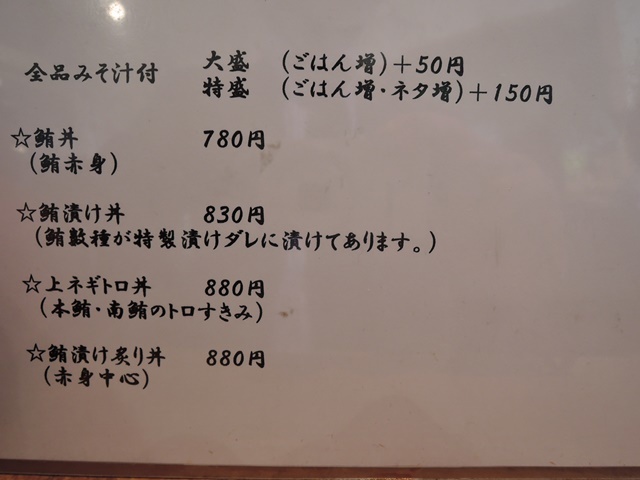 全品みそ汁付 大盛 (ごはん増)＋50円
特盛 (ごはん増・ネタ増)＋150円
☆鮪丼 780円
(鮪赤身)
☆鮪漬け丼 830円
(鮪数種が特製漬けダレに漬けてあります。)
☆上ネギトロ丼 880円
(本鮪・南鮪のトロすきみ)
☆鮪漬け炙り丼 880円
(赤身中心)